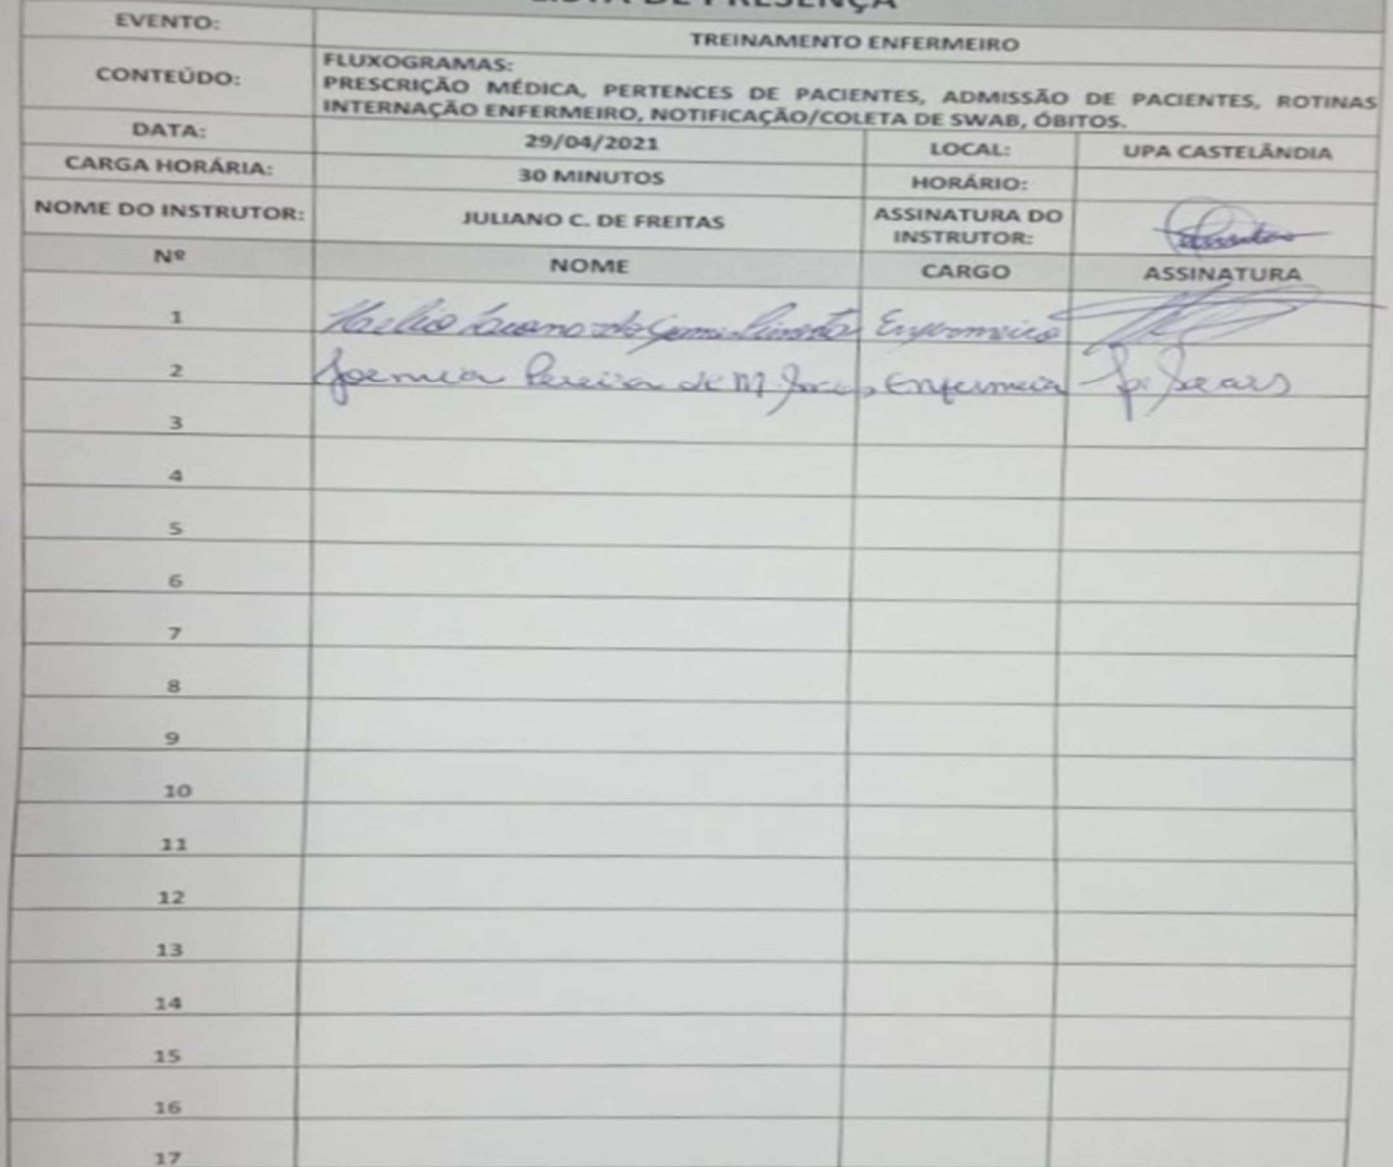 LISTA DE PRESENÇA
EVENTO: TREINAMENTO ENFERMEIRO
CONTEÚDO: FLUXOGRAMAS:
PRESCRIÇÃO MÉDICA, PERTENCES DE PACIENTES, ADMISSÃO DE PACIENTES, ROTINAS
INTERNAÇÃO ENFERMEIRO, NOTIFICAÇÃO/COLETA DE SWAB, ÓBITOS.
DATA: 29/04/2021 LOCAL: UPA CASTELÂNDIA
CARGA HORÁRIA: 30 MINUTOS HORÁRIO:
NOME DO INSTRUTOR: JULIANO C. DE FREITAS ASSINATURA DO
INSTRUTOR:
Nº NOME CARGO ASSINATURA
1 Enfermeiro
2 Pereira de M. Enfermeira
3
4
5
6
7
8
9
10
11
12
13
14
15
16
17